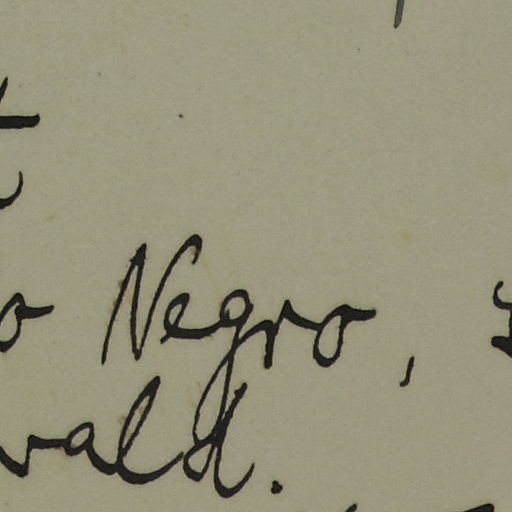 o Negro,
wald.